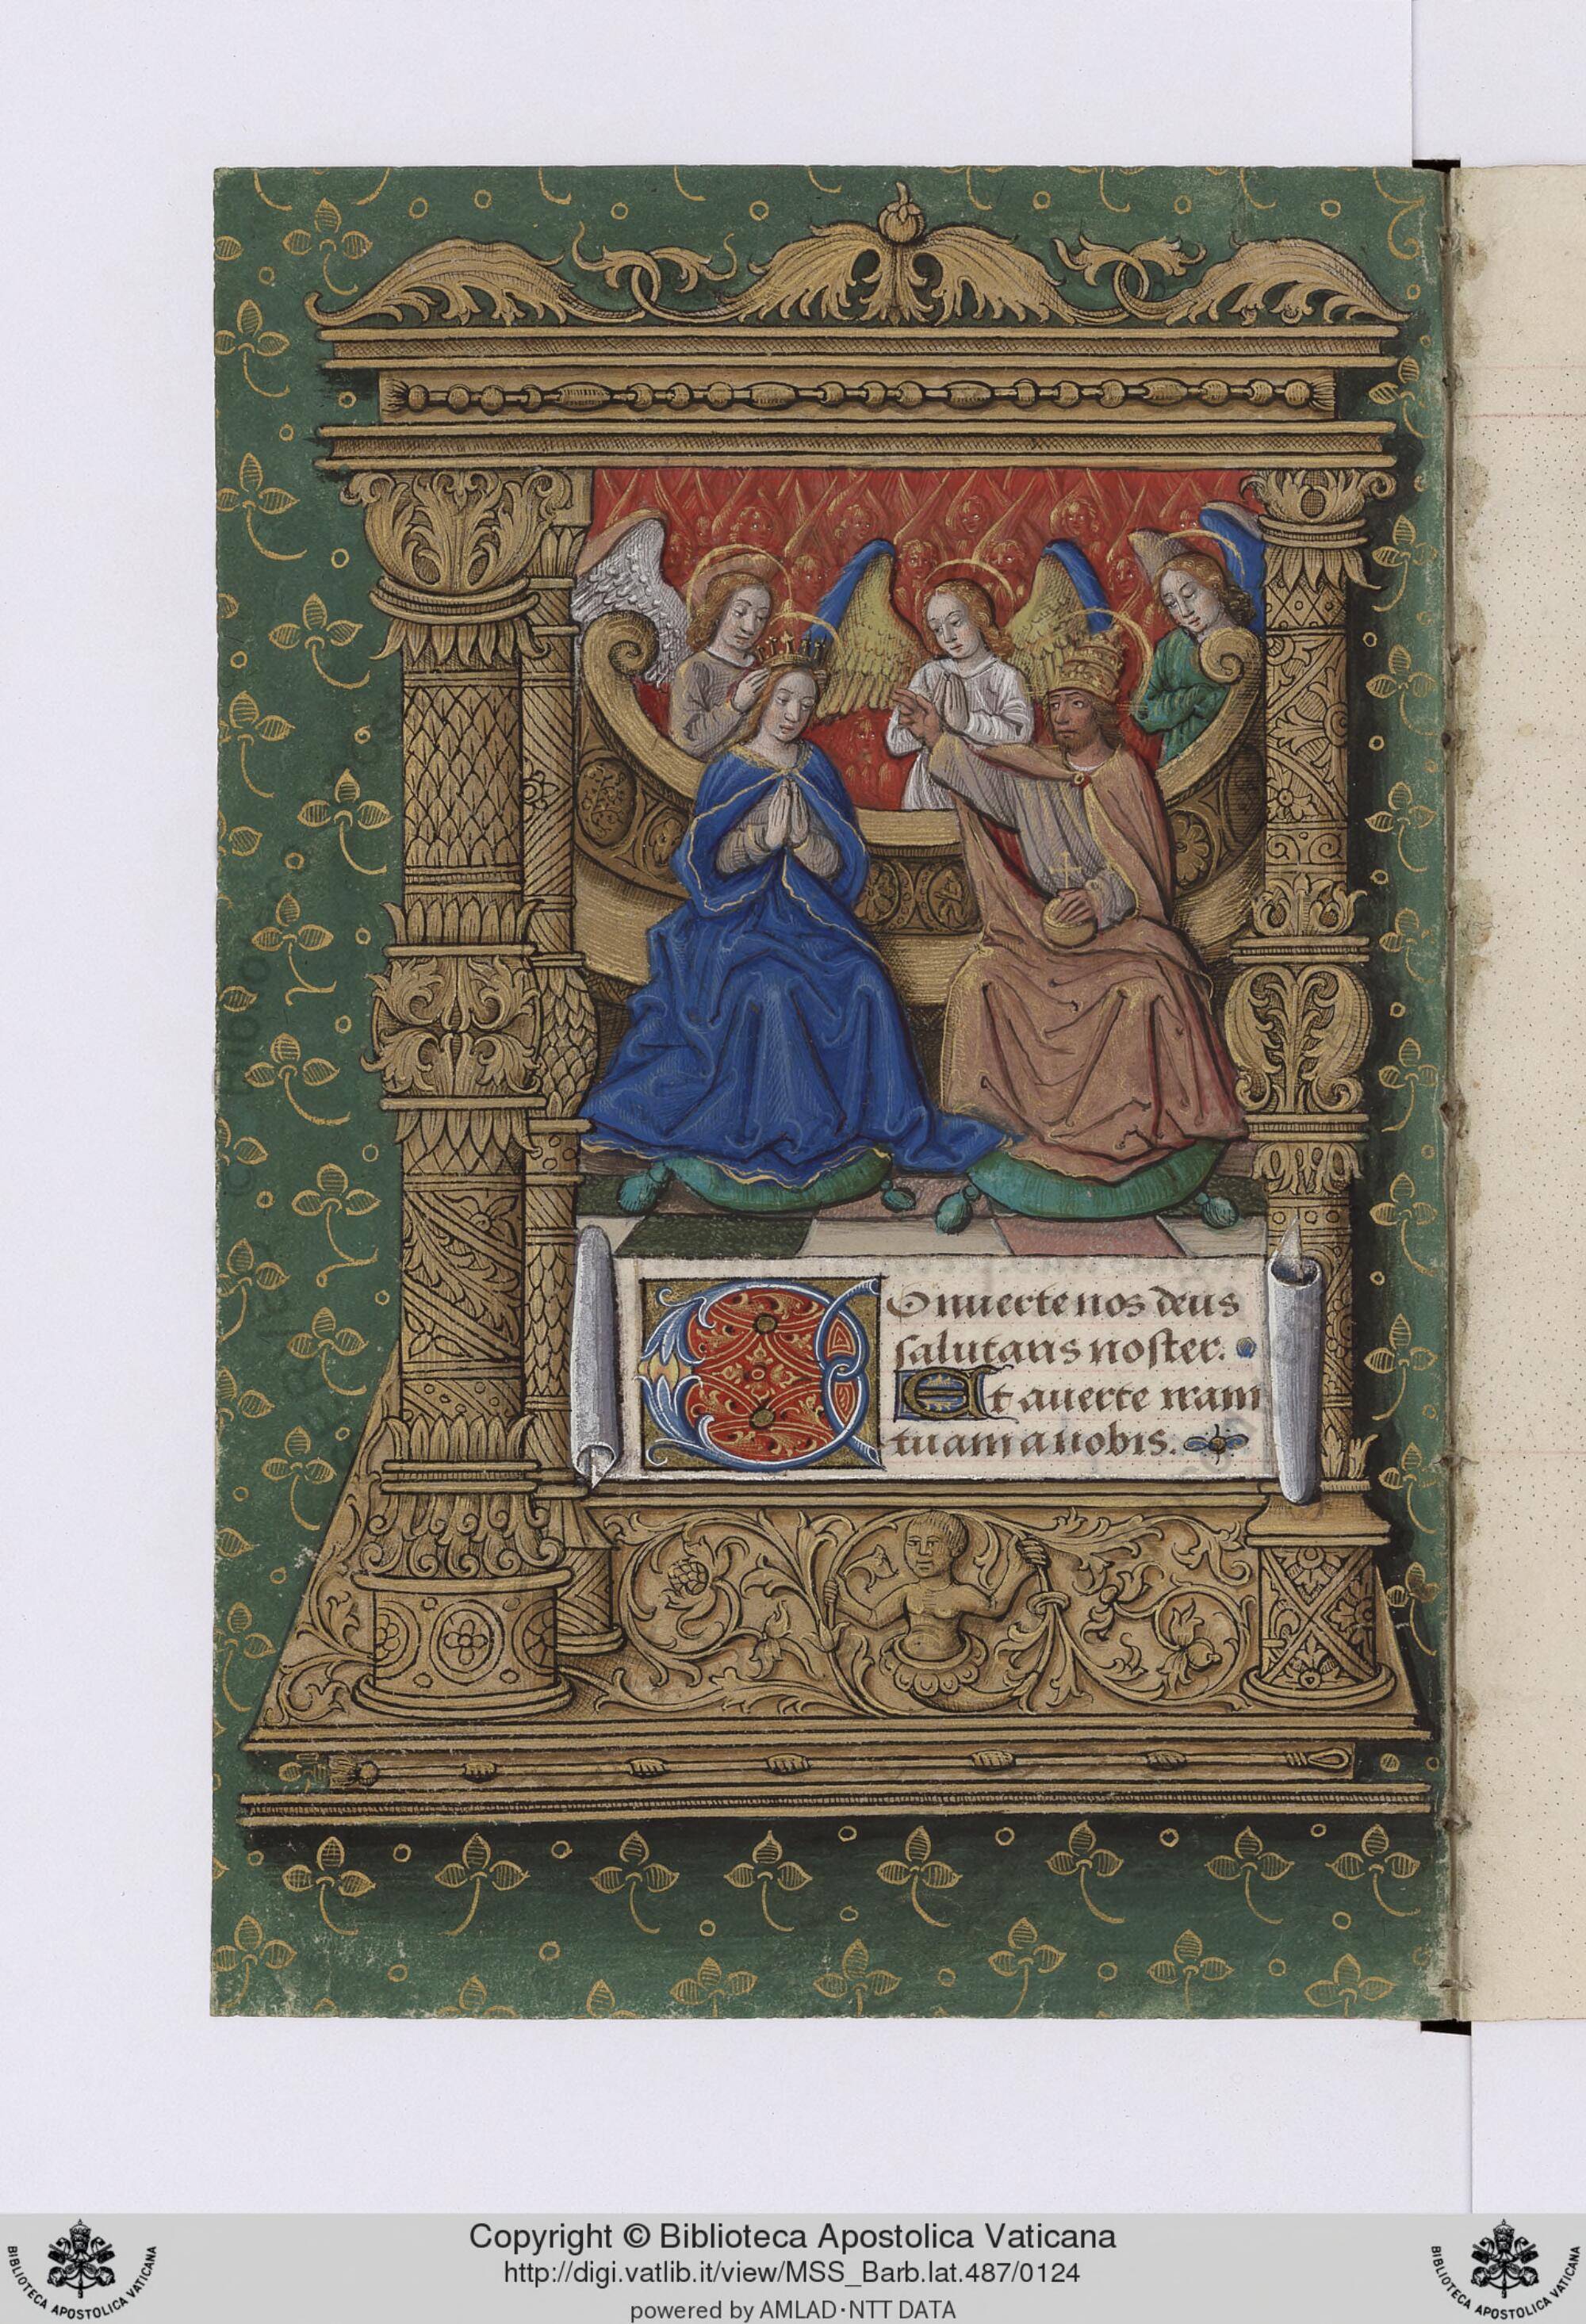 Conuerte nos deus
salutaris noster.
Et auerte iram
tuam a nobis.
Copyright © Biblioteca Apostolica Vaticana
http://digi.vatlib.it/view/MSS_Barb.lat.487/0124
powered by AMLAD·NTT DATA
BIBLIOTECA APOSTOLICA VATICANA
BIBLIOTECA APOSTOLICA VATICANA